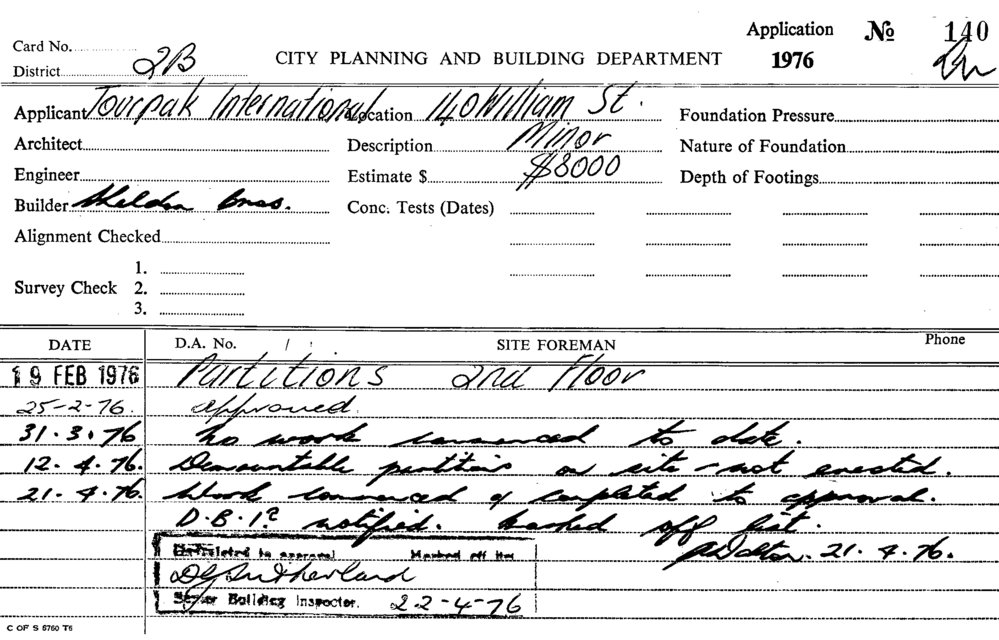 Application № 140
Card No.
District 2B CITY PLANNING AND BUILDING DEPARTMENT 1976
Applicant Tourpak International Location 140 William St. Foundation Pressure
Architect Description Minor Nature of Foundation
Engineer Estimate $ $8000 Depth of Footings
Builder Sheldon Bros. Conc. Tests (Dates)
Alignment Checked
1.
Survey Check 2.
3.
DATE D.A. No. / : SITE FOREMAN Phone
19 FEB 1976 Partitions 2nd Floor
25-2-76. approved.
31.3.76 No work commenced to date.
12.4.76. Demountable partitions on site - not erected.
21.4.76. Work commenced & completed to approval.
D.B.I? notified. Marked off list.
ADalton. 21.4.76.
Completed to approval Marked off list
DGSutherland
Senior Building Inspector. 22-4-76
C OF S 5760 T6